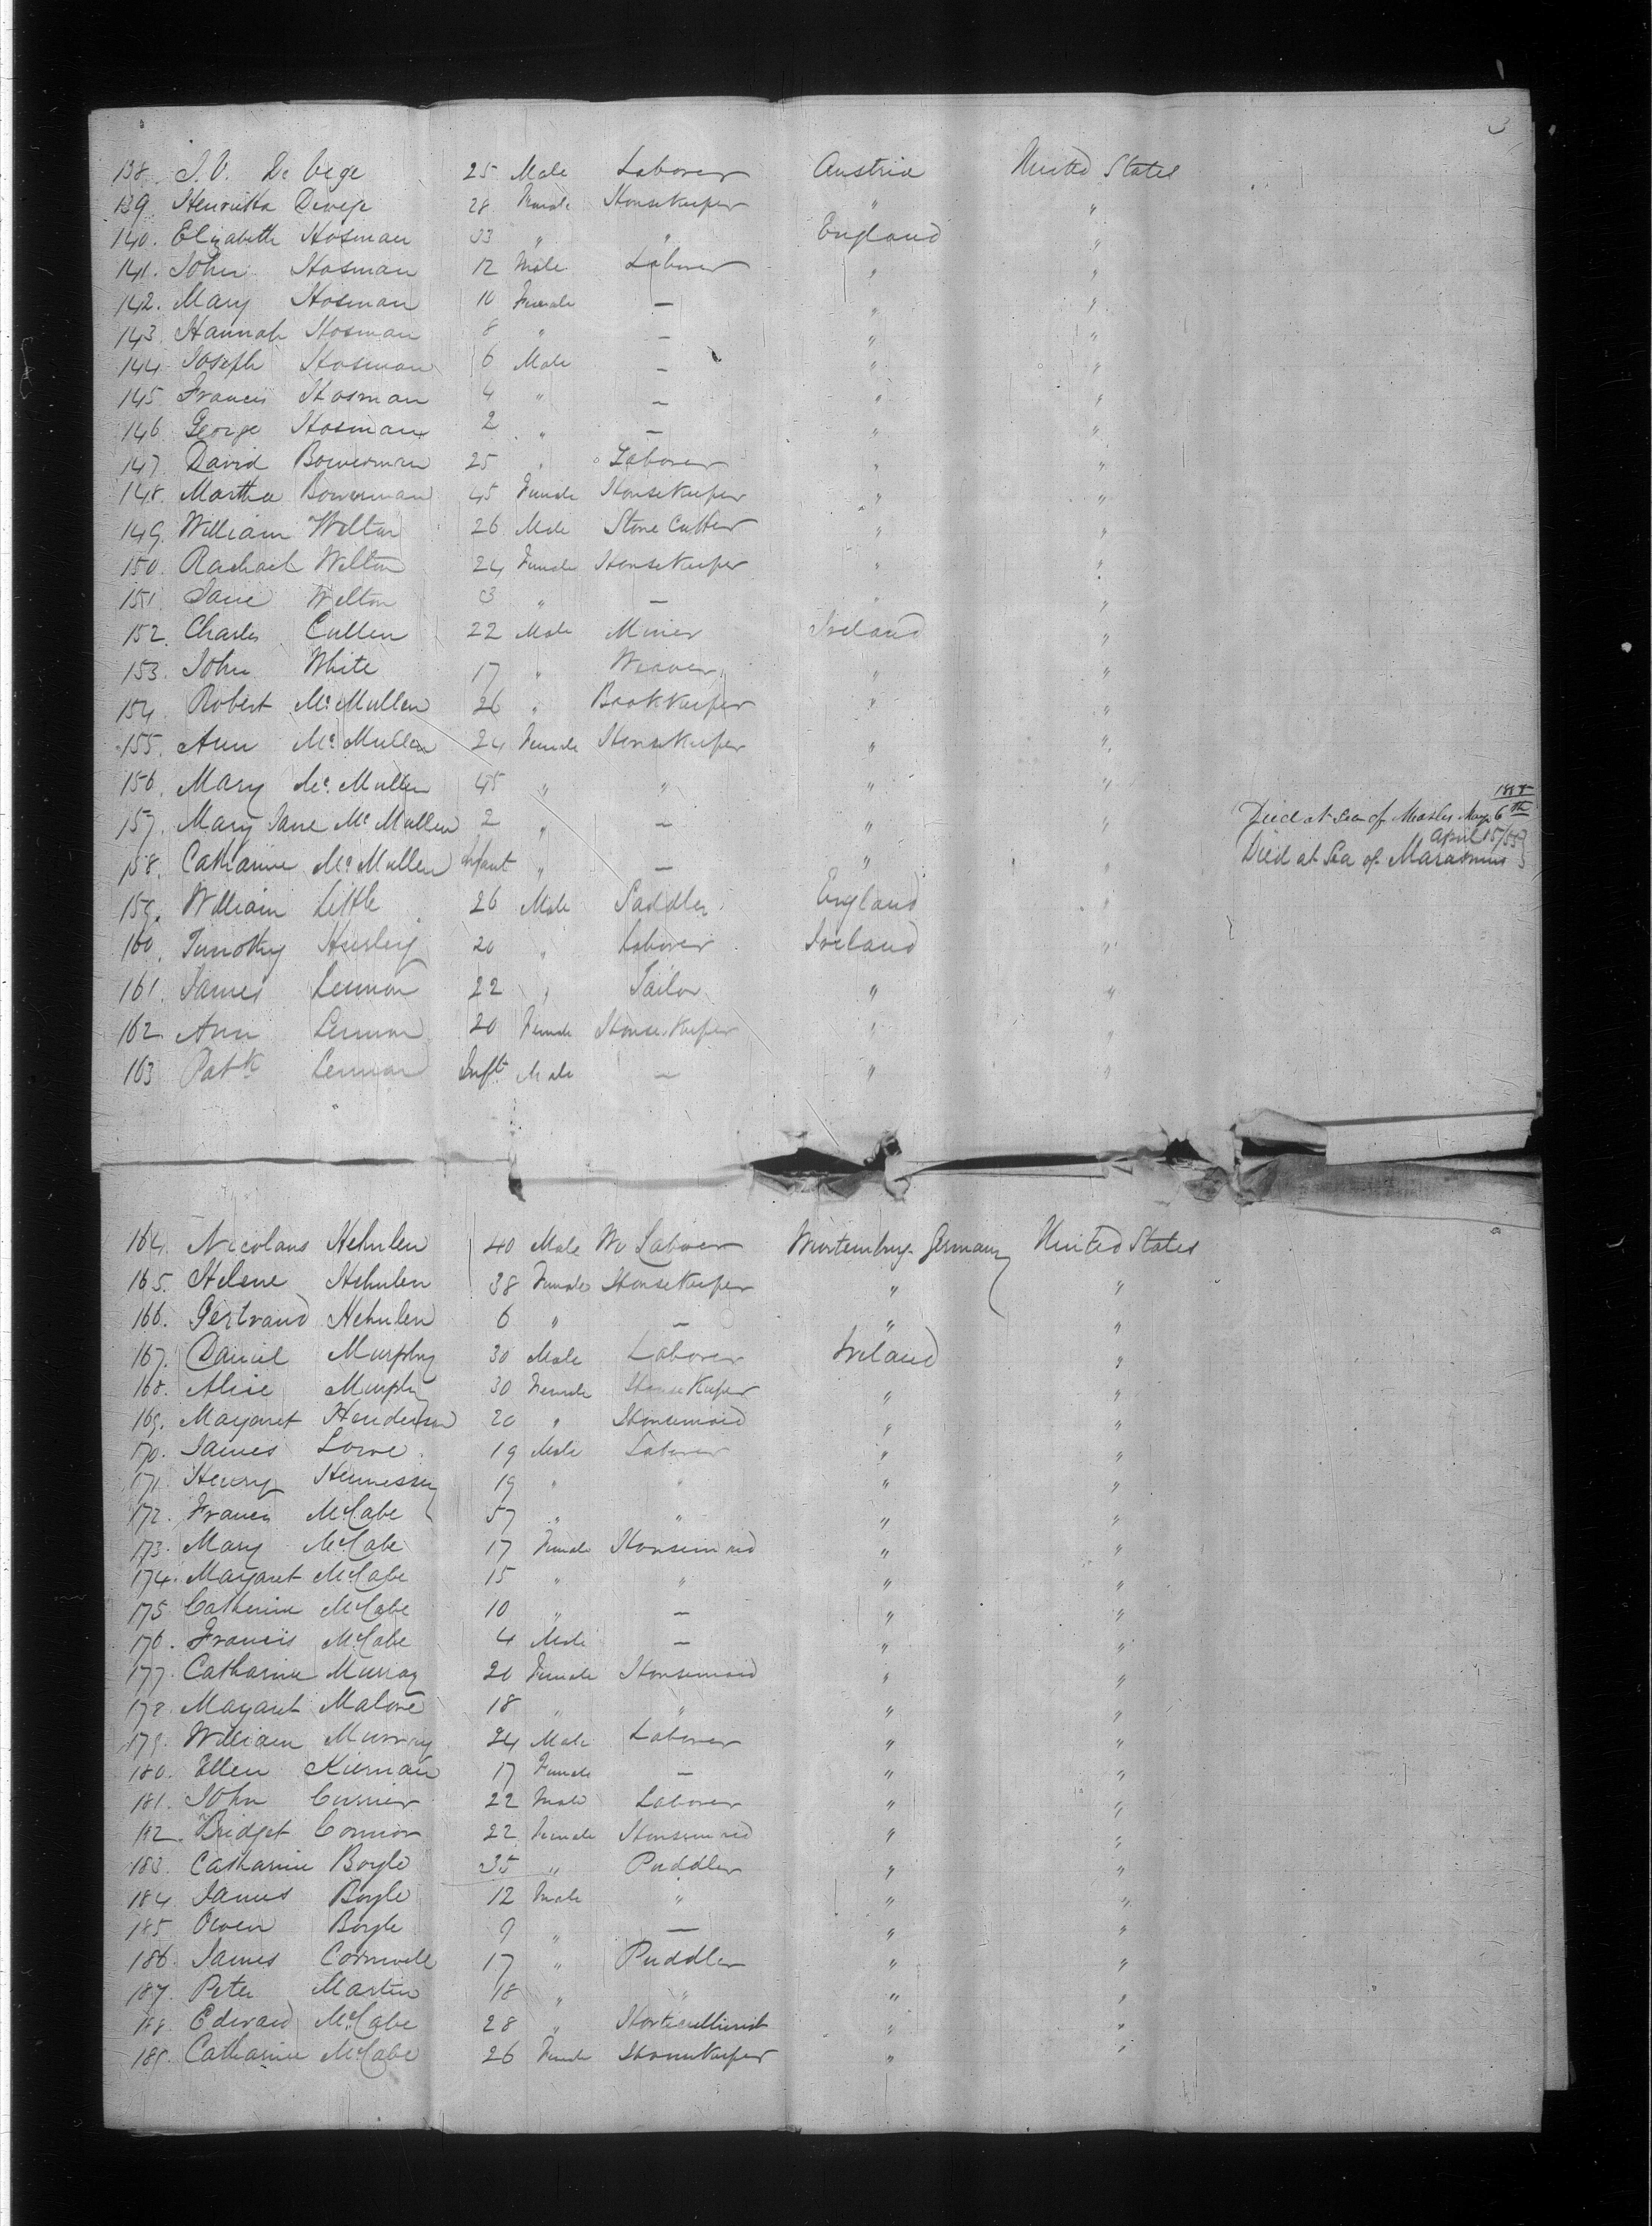 3
138. J. V. De Vege 25 Male Laborer Austria United States
139. Henrietta Devege 28 Female HouseKeeper " "
140. Elizabeth Hosman 33 " " England "
141. John Hosman 12 Male Laborer " "
142. Mary Hosman 10 Female — " "
143. Hannah Hosman 8 " — " "
144 Joseph Hosman 6 Male — " "
145 Francis Hosman 4 " — " "
146 George Hosman 2 " — " "
147. David Bowerman 25 " Laborer " "
148. Martha Bowerman 45 Female HouseKeeper " "
149. William Welton 26 Male Stone Cutter " "
150. Rachael Welton 24 Female HouseKeeper " "
151. Jane Welton 3 " — " "
152. Charles Cullen 22 Male Miner Ireland "
153. John White 17 " Weaver " "
154 Robert McMullen 26 " BookKeeper " "
155. Ann McMullen 24 Female HouseKeeper " "
156. Mary McMullen 45 " " " "
157. Mary Jane McMullen 2 " — " " Died at Sea of Measles May 6th 1855
158. Catharine McMullen Infant " — " " Died at Sea of Marasmus April 15/55
159. William Little 26 Male Saddler England "
160. Timothy Hurley 20 " Laborer Ireland "
161. James Lennon 22 " Tailor " "
162. Ann Lennon 20 Female House Keeper " "
163 Patk Lennon Inft Male — " "
164. Nicolaus Hehulen 40 Male Laborer Wurtemburg Germany United States
165. Helene Hehulen 38 Female HouseKeeper " "
166. Gertraud Hehulen 6 " — " "
167. Daniel Murphy 30 Male Laborer Ireland "
168. Alice Murphy 30 Female HouseKeeper " "
169. Margaret Henderson 20 " Housemaid " "
170. James Lowe 19 Male Laborer " "
171 Henry Hennessy 19 " " " "
172. Francis McCabe 57 " " " "
173. Mary McCabe 17 Female Housemaid " "
174. Margaret McCabe 15 " " " "
175 Catherine McCabe 10 " — " "
176. Francis McCabe 4 Male — " "
177. Catharine Murray 20 Female Housemaid " "
178. Margaret Malone 18 " " " "
179. William Murray 24 Male Laborer " "
180. Ellen Kiernan 17 Female — " "
181. John Currier 22 Male Laborer " "
182. Bridget Connor 22 Female Housemaid " "
183. Catharine Boyle 35 " Puddler " "
184 James Boyle 12 Male " " "
185 Owen Boyle 9 " — " "
186. James Cornwell 17 " Puddler " "
187. Peter Martin 18 " " " "
188. Edward McCabe 28 " Horticulturist " "
189. Catharine McCabe 26 Female HouseKeeper " "